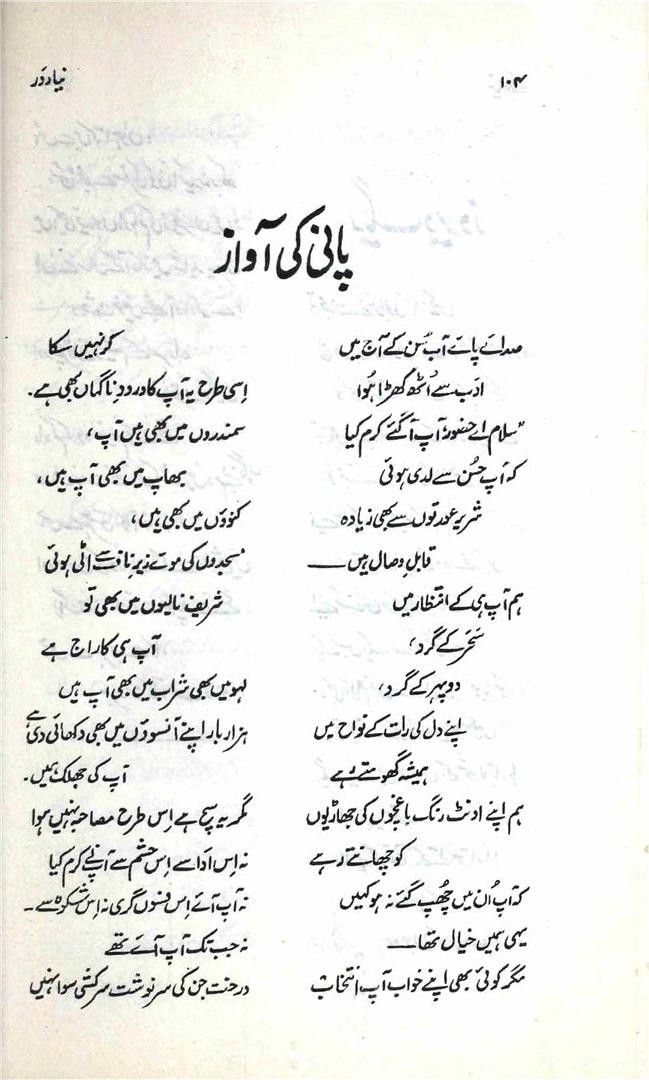 ۱۰۴
نیا دَور
پانی کی آواز
صدائے پائے آب سُن کے آج میں
ادَب سے اُٹھ کھڑا ہُوا
"سلام اے حضور! آپ آ گئے کرم کیا
کہ آپ حُسن سے لدی ہوئی
شریر عورتوں سے بھی زیادہ
قابلِ وصال ہیں ——
ہم آپ ہی کے انتظار میں
سَحَر کے گرد،
دوپہر کے گرد،
اپنے دل کی رات کے نواح میں
ہمیشہ گھومتے رہے
ہم اپنے اونٹ رنگ باغچوں کی جھاڑیوں
کو چھانتے رہے
کہ آپ اُن میں چھپ گئے نہ ہو کہیں
یہی ہمیں خیال تھا——
مگر کوئی بھی اپنے خواب آپ انتخاب
کر نہیں سکا
اِسی طرح یہ آپ کا ورودِ ناگہاں بھی ہے۔
سمندروں میں بھی ہیں آپ،
بھاپ میں بھی آپ ہیں،
کنوؤں میں بھی ہیں،
مسجدوں کی موئے زیرِ ناف سے اٹی ہوئی
شریف نالیوں میں بھی تو
آپ ہی کا راج ہے
لہو میں بھی شراب میں بھی آپ ہیں
ہزار بار اپنے آنسوؤں میں بھی دکھائی دی ہے
آپ کی جھلک ہمیں۔
مگر یہ سچ ہے اِس طرح مصاحبہ نہیں ہوا
نہ اِس ادا سے اِس حشم سے آپ نے کرم کیا
نہ آپ آئے اِس فسوں گری نہ اِس شکوہ سے۔
نہ جب تک آپ آئے تھے
درخت جن کی سرنوشت سرکشی سوا نہیں